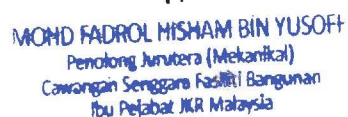 MOHD FADROL HISHAM BIN YUSOFF
Penolong Jurutera (Mekanikal)
Cawangan Senggara Fasiliti Bangunan
Ibu Pejabat JKR Malaysia